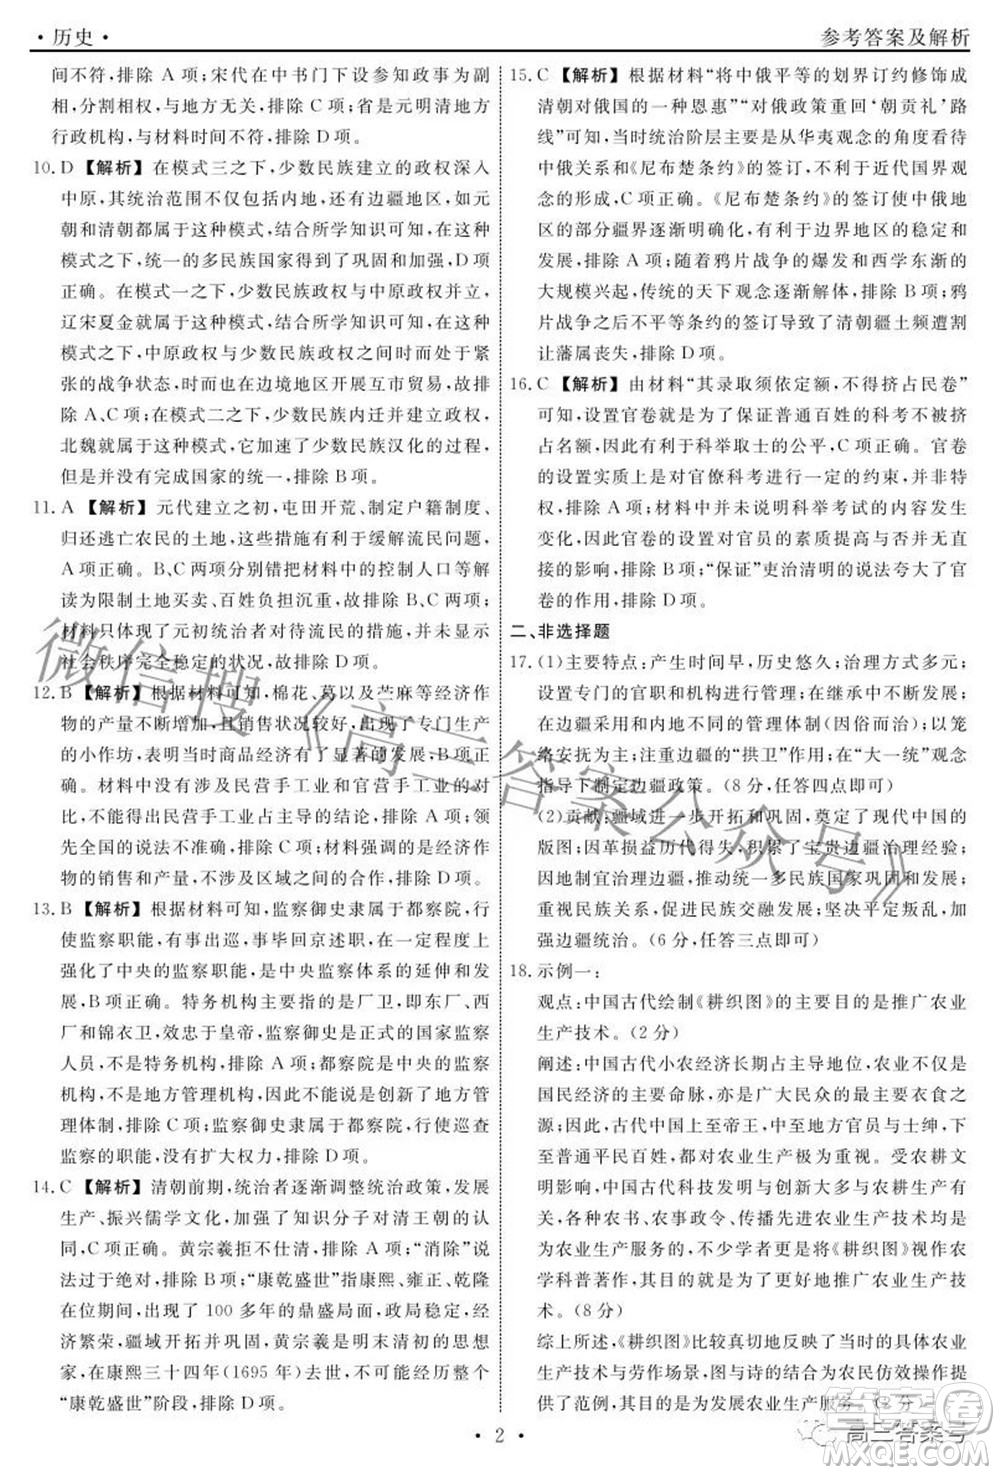 · 历史 ·
参考答案及解析
间不符，排除 A 项；宋代在中书门下设参知政事为副
相，分割相权，与地方无关，排除 C 项；省是元明清地方
行政机构，与材料时间不符，排除 D 项。
10. D 【解析】 在模式三之下，少数民族建立的政权深入
中原，其统治范围不仅包括内地，还有边疆地区，如元
朝和清朝都属于这种模式，结合所学知识可知，在这种
模式之下，统一的多民族国家得到了巩固和加强，D 项
正确。在模式一之下，少数民族政权与中原政权并立，
辽宋夏金就属于这种模式，结合所学知识可知，在这种
模式之下，中原政权与少数民族政权并没有一直处于紧
张的战争状态，时而会在边境地区开展互市贸易，故排
除 A、C 项；在模式二之下，少数民族内迁并建立政权，
北魏就属于这种模式，它加速了少数民族汉化的历程，
并没有完成国家的统一，排除 B 项。
11. A 【解析】 元代建立之初，屯田开荒、制定户籍制度、
归还逃亡农民的土地，这些措施有利于缓解流民问题，
A 项正确。B、C 两项分别错把材料中的控制人口等解
读为限制土地买卖、百姓负担沉重，故排除 B、C 项；
材料只体现了元初统治者对待流民的措施，并不能说明
社会秩序完全稳定的状况，故排除 D 项。
12. B 【解析】 根据材料可知，棉花、葛以及苎麻等经济作
物的产量不断增加，且销售状况较好，出现了专门生产
的小作坊，表明当时商品经济有了显著的发展，B 项正
确。材料中没有涉及民营手工业和官营手工业的对
比，不能得出民营手工业占主导的结论，排除 A 项；领
先全国的说法不准确，排除 C 项；材料强调的是经济作
物的销售和产量，不涉及区域之间的合作，排除 D 项。
13. B 【解析】 根据材料可知，监察御史隶属于都察院，行
使监察职能，有事出巡，事毕回京述职，在一定程度上
强化了中央的监察职能，是中央监察体系的延伸和发
展，B 项正确。特务机构主要指的是厂卫，即东厂、西
厂和锦衣卫，效忠于皇帝，监察御史是正式的国家监察
人员，不是特务机构，排除 A 项；都察院是中央的监察
机构，不是地方管理机构，不能体现创新了地方管理体
制，排除 C 项；监察御史隶属于都察院，行使巡查监察
职能，没有扩大权力，排除 D 项。
14. C 【解析】 清朝前期，统治者逐渐调整统治政策，发展
生产、振兴儒学文化，加强了知识分子对清王朝的认
同，C 项正确。黄宗羲拒不出仕，排除 A 项；“消除”说
法过于绝对，排除 B 项；“康乾盛世”指康熙、雍正、乾隆
在位期间，出现了 100 多年的鼎盛局面，政局稳定，经
济繁荣，疆域开拓并巩固，黄宗羲是明末清初的思想
家，在康熙三十四年（1695 年）去世，不可能经历整个
“康乾盛世”阶段，排除 D 项。
15. C 【解析】 根据材料“将中俄平等的划界订约修饰成
清朝对俄国的一种恩惠”“对俄政策重回‘朝贡礼’路
线”可知，当时统治阶层主要是从华夷观念的角度看待
中俄关系和《尼布楚条约》的签订，不利于近代国界观念
的形成，C 项正确。《尼布楚条约》的签订使中俄地
区的部分疆界逐渐明确化，有利于边界地区的稳定和发
展，排除 A 项；随着鸦片战争的爆发和西学东渐的
大规模兴起，传统的天下观念逐渐解体，排除 B 项；鸦
片战争之后不平等条约的签订导致了清朝疆土频遭割
让藩属丧失，排除 D 项。
16. C 【解析】 由材料“其录取须依定额，不得挤占民卷”可
知，设置官卷就是为了保证普通百姓的科考不被挤
占名额，因此有利于科举取士的公平，C 项正确。官卷
的设置对官僚科考进行了一定的约束，并非特
权，排除 A 项；材料中并未说明科举考试的内容发生
变化，排除 B 项；官卷的设置对官员的素质提高与否没有直
接的影响，排除 D 项；“保证”吏治清明的说法夸大了官
卷的作用，排除 D 项。
二、非选择题
17. (1)主要特点：产生时间早，历史悠久；治理方式多元；
设置专门的官职和机构进行管理；在继承中不断发展；
在边疆采用和内地不同的管理体制（因俗而治）；以笼
络安抚为主；注重边疆的“拱卫”作用；在“大一统”观念
指导下制定边疆政策。(8 分，任答四点即可)
(2)贡献：疆域进一步开拓和巩固，奠定了现代中国的
版图；因革损益历代得失，积累了宝贵边疆治理经验；
因地制宜治理边疆，统一多民族国家巩固和发展；
重视民族关系，促进民族交融发展；坚决平定叛乱，加
强边疆统治。(6 分，任答三点即可)
18. 示例一：
观点：中国古代绘制《耕织图》的主要目的是推广农业
生产技术。(2 分)
阐述：中国古代小农经济长期占主导地位，农业不仅是
国民经济的命脉，亦是广大民众的主要衣食之
源；因此，古代中国上至帝王，中至地方官员与士绅，下
至平民百姓，都对农业生产极为重视。受农耕文明
影响，中国古代科技发明与创造大多与农耕生产相
关，各种农书、农事政令、传播先进农业生产技术均为
农业生产服务的，与此相适应，将《耕织图》视作农
学科普著作，其目的是为了更好地推广农业生产技
术。(8 分)
综上所述，《耕织图》比较真切地反映了当时的具体农业
生产技术与劳作场景，图与诗的结合为农民仿效操作提
供了范例，其目的是推广农业生产技术。(2 分)
· 2 ·
微信搜《高三答案公众号》
高三答案号
答案圈
MXQE.COM